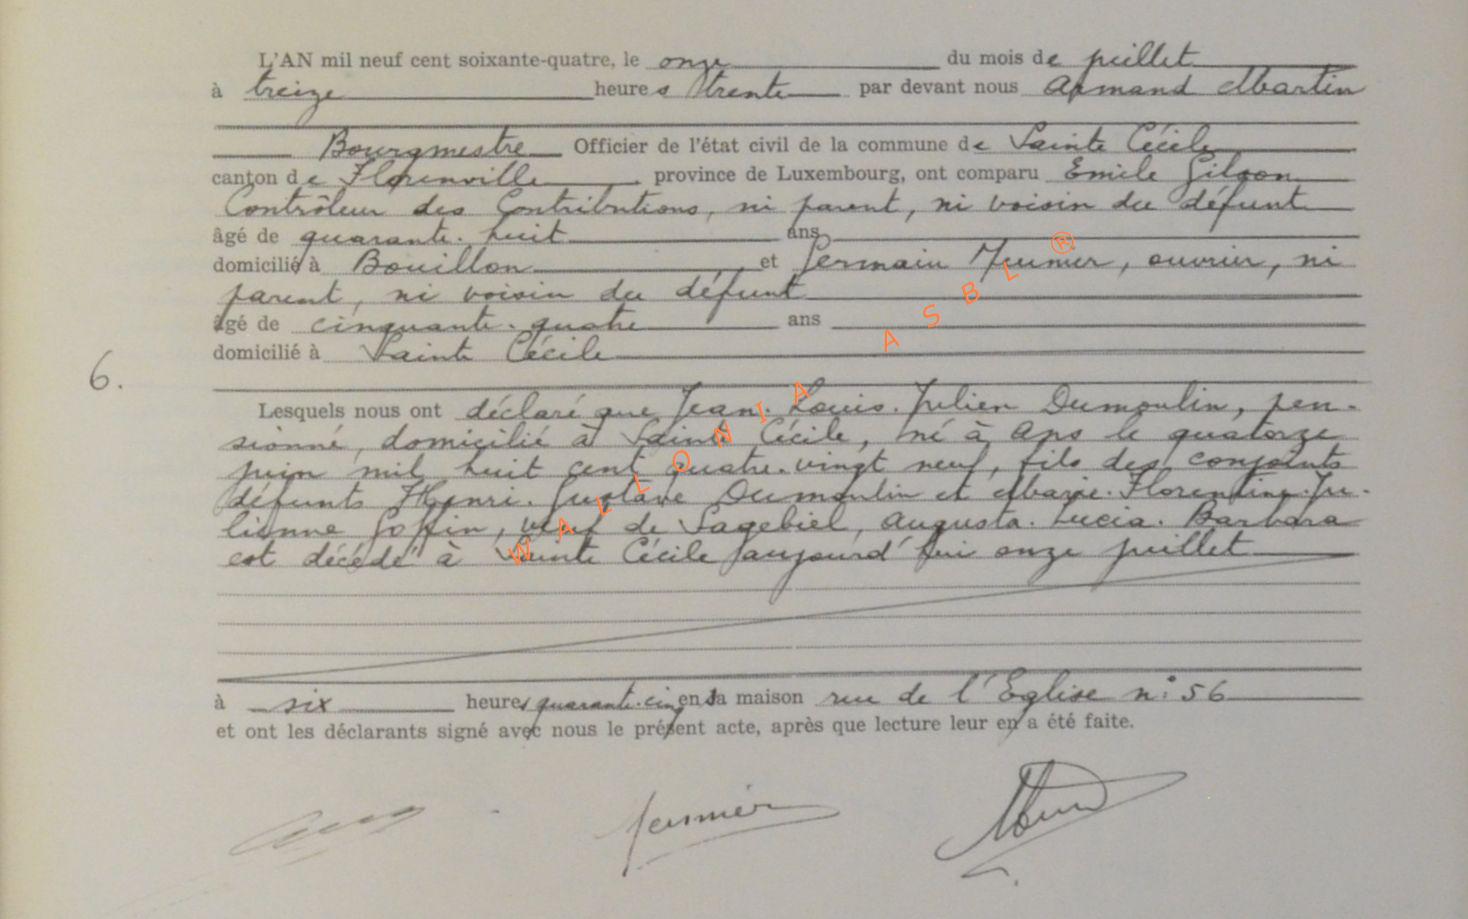 L'AN mil neuf cent soixante-quatre, le onze du mois de juillet
à treize heures trente par devant nous Armand Martin
Bourgmestre Officier de l'état civil de la commune de Sainte Cécile
canton de Florenville province de Luxembourg, ont comparu Emile Gilson
Contrôleur des Contributions, ni parent, ni voisin du défunt
âgé de quarante-huit ans
domicilié à Bouillon et Germain Meunier, ouvrier, ni
parent, ni voisin du défunt
âgé de cinquante-quatre ans
domicilié à Sainte Cécile
6.
Lesquels nous ont déclaré que Jean-Louis-Julien Dumoulin, pen-
sionné, domicilié à Sainte Cécile, né à Ans le quatorze
juin mil huit cent quatre-vingt neuf, fils des conjoints
défunts Henri-Gustave Dumoulin et Marie-Florentine-Ju-
lienne Goffin, veuf de Sagebiel, Augusta-Lucia-Barbara
est décédé à Sainte Cécile aujourd'hui onze juillet
à six heures quarante-cinq en sa maison rue de l'Eglise n° 56
et ont les déclarants signé avec nous le présent acte, après que lecture leur en a été faite.
Meunier
WALLONIA ASBL ®